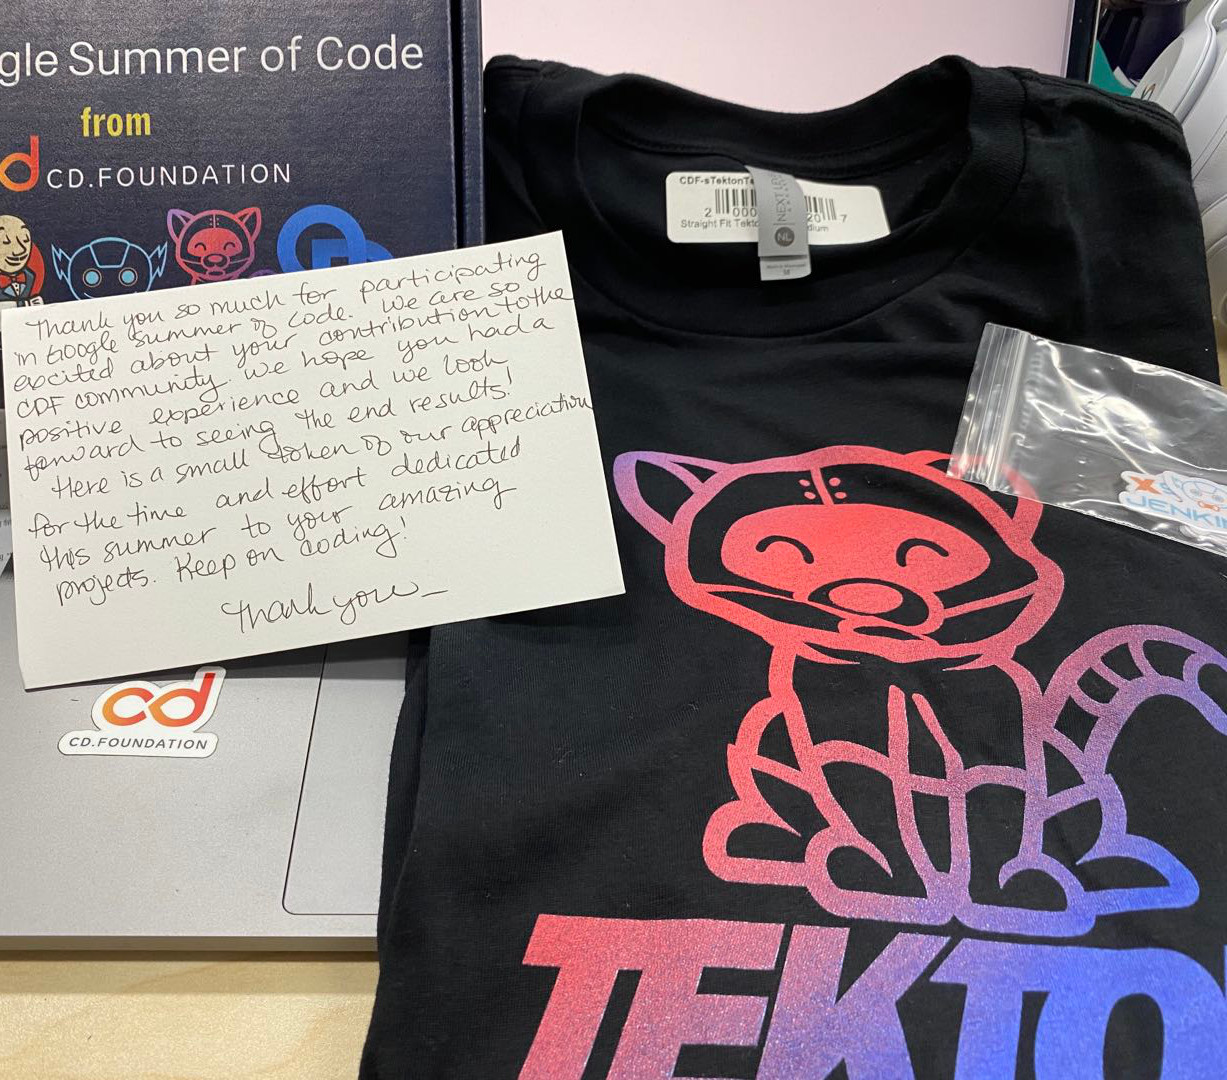 gle Summer of Code
from
cd
CD.FOUNDATION
Thank you so much for participating
in Google Summer of Code. We are so
excited about your contribution to the
CDF community. We hope you had a
positive experience and we look
forward to seeing the end results!
Here is a small token of our appreciation
for the time and effort dedicated
this summer to your amazing
projects. Keep on coding!
Thank you
cd
CD.FOUNDATION
CDF-sTektonTe
2 000
20 7
Straight Fit Tekto
dium
NEXT LEVEL
NL
M
JENKI
TEKTO